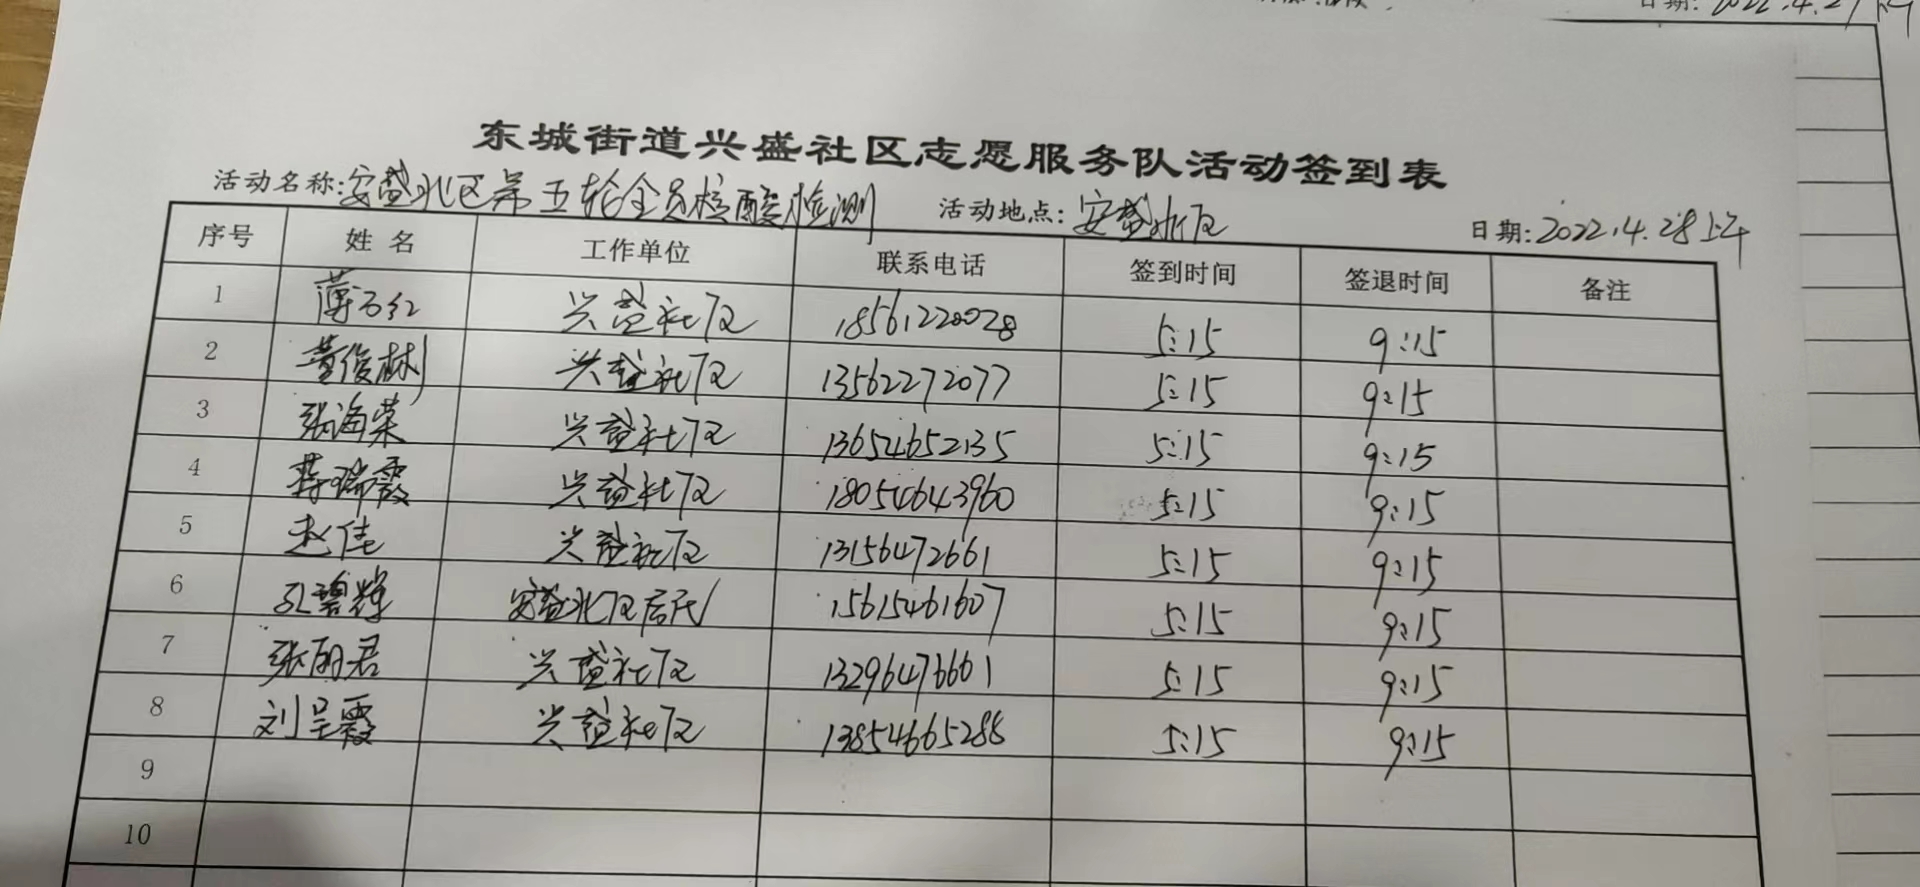 日期: 2022.4.27
东城街道兴盛社区志愿服务队活动签到表
活动名称:安盛北区第五轮全员核酸检测 活动地点:安盛北区 日期:2022.4.28上午
序号 姓名 工作单位 联系电话 签到时间 签退时间 备注
1 薄云红 兴盛社区 18561220028 5:15 9:15
2 董俊彬 兴盛社区 13562272077 5:15 9:15
3 张海荣 兴盛社区 13654652135 5:15 9:15
4 蒋瑞霞 兴盛社区 18054643960 5:15 9:15
5 赵佳 兴盛社区 13156472661 5:15 9:15
6 孔碧辉 安盛北区居民 15615461607 5:15 9:15
7 张丽君 兴盛社区 13296476601 5:15 9:15
8 刘呈霞 兴盛社区 13854665288 5:15 9:15
9
10